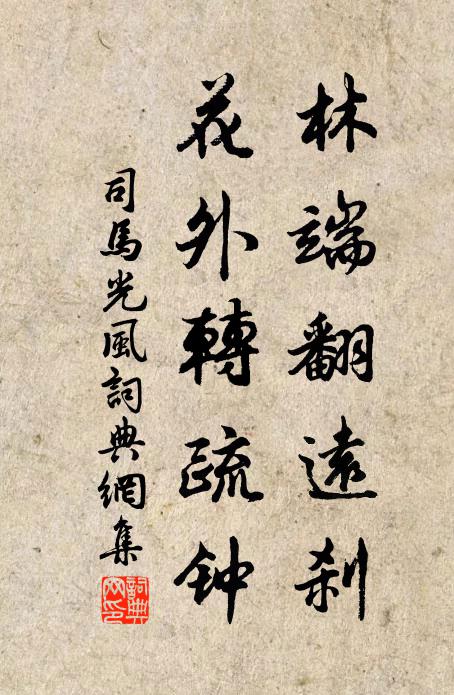 林端翻遠刹
花外轉疏钟
司馬光風詞典網集
詞典網印